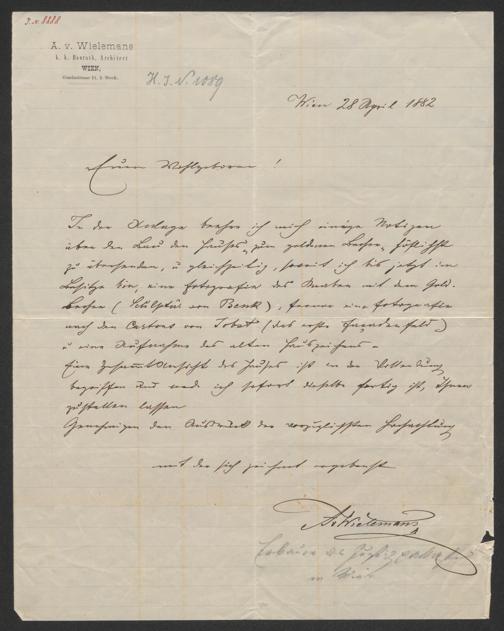 J.N. 8888
A. v. Wielemans
k. k. Baurath, Architect
WIEN,
H. J. N. 1089
Wien 28 April 1882
Euer Wohlgeboren!
In der Anlage beehre ich mich einige Notizen
über den Bau des Hauses „zum goldenen Becher“ höflichst
zu übersenden, u gleichzeitig, soweit ich bis jetzt im
Besitze bin, eine Fotografie des Knaben mit dem Gold-
becher (Sculptur von Benk), ferner eine Fotografie
nach den Cartons von Jobst (das erste Façadenfeld)
u eine Aufnahme des alten Hauszeichens.
Eine Gesammtansicht des Hauses ist in der Vollendung
begriffen und werde ich sofort dieselbe fertig ist, Ihnen
zustellen lassen
Genehmigen den Ausdruck der vorzüglichsten Hochachtung
mit der sich zeichnet ergebenst
A v Wielemans
Erbauer des Justizpalastes
in Wien